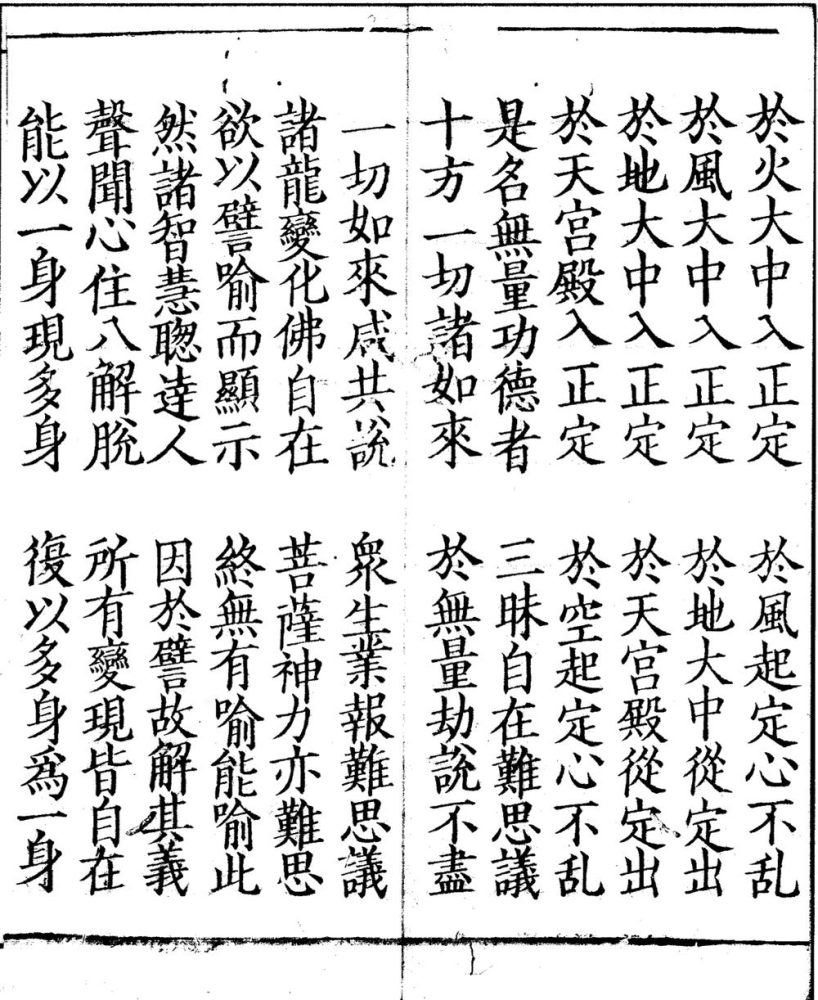 於火大中入正定　於風起定心不乱
於風大中入正定　於地大中從定出
於地大中入正定　於天宮殿從定出
於天宮殿入正定　於空起定心不乱
是名無量功德者　三昧自在難思議
十方一切諸如來　於無量劫說不盡
一切如來咸共說　眾生業報難思議
諸龍變化佛自在　菩薩神力亦難思
欲以譬喻而顯示　終無有喻能喻此
然諸智慧聦達人　因於譬故解其義
聲聞心住八解脫　所有變現皆自在
能以一身現多身　復以多身為一身